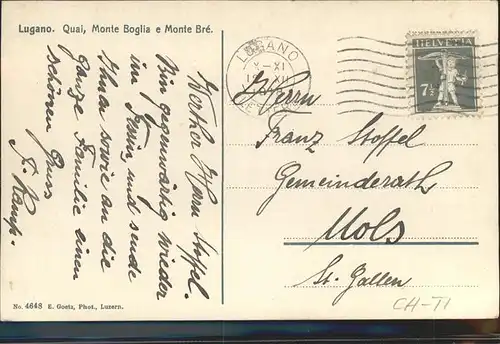 Lugano. Quai, Monte Boglia e Monte Bré.
LUGANO
X-XI
HELVETIA
7½
Werther Herr Stoffel.
Bin gegenwärtig wieder
im Tessin und sende
Ihnen sowie an die
ganze Familie einen
schönen Gruss
Herrn
Franz Stoffel
Gemeinderath
Mols
St. Gallen
CH-TI
No. 4648 E. Goetz, Phot., Luzern.